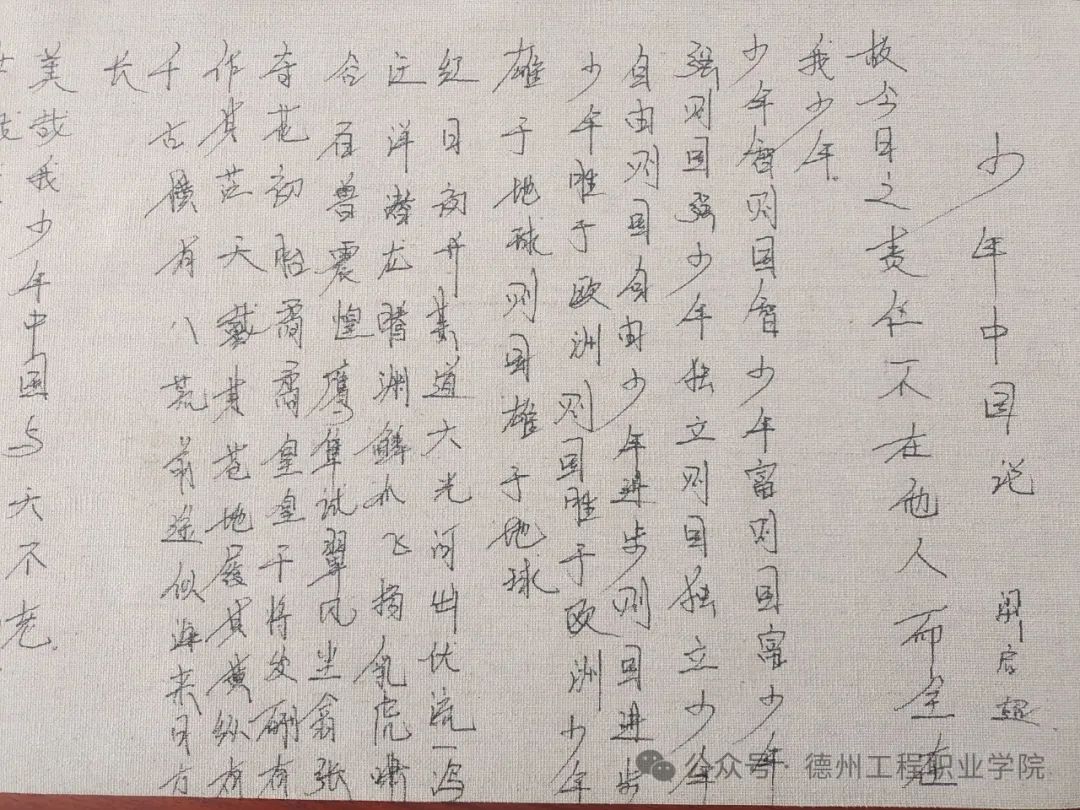 少年中国说
梁启超
故今日之责任不在他人而全在
我少年
少年智则国智少年富则国富少年
强则国强少年独立则国独立少年
自由则国自由少年进步则国进步
少年胜于欧洲则国胜于欧洲少年
雄于地球则国雄于地球
红日初升其道大光河出伏流一泻
汪洋潜龙腾渊鳞爪飞扬乳虎啸
谷百兽震惶鹰隼试翼风尘翕张
奇花初胎矞矞皇皇干将发硎有
作其芒天戴其苍地履其黄纵有
千古横有八荒前途似海来日方
长
美哉我少年中国与天不老
公众号·德州工程职业学院